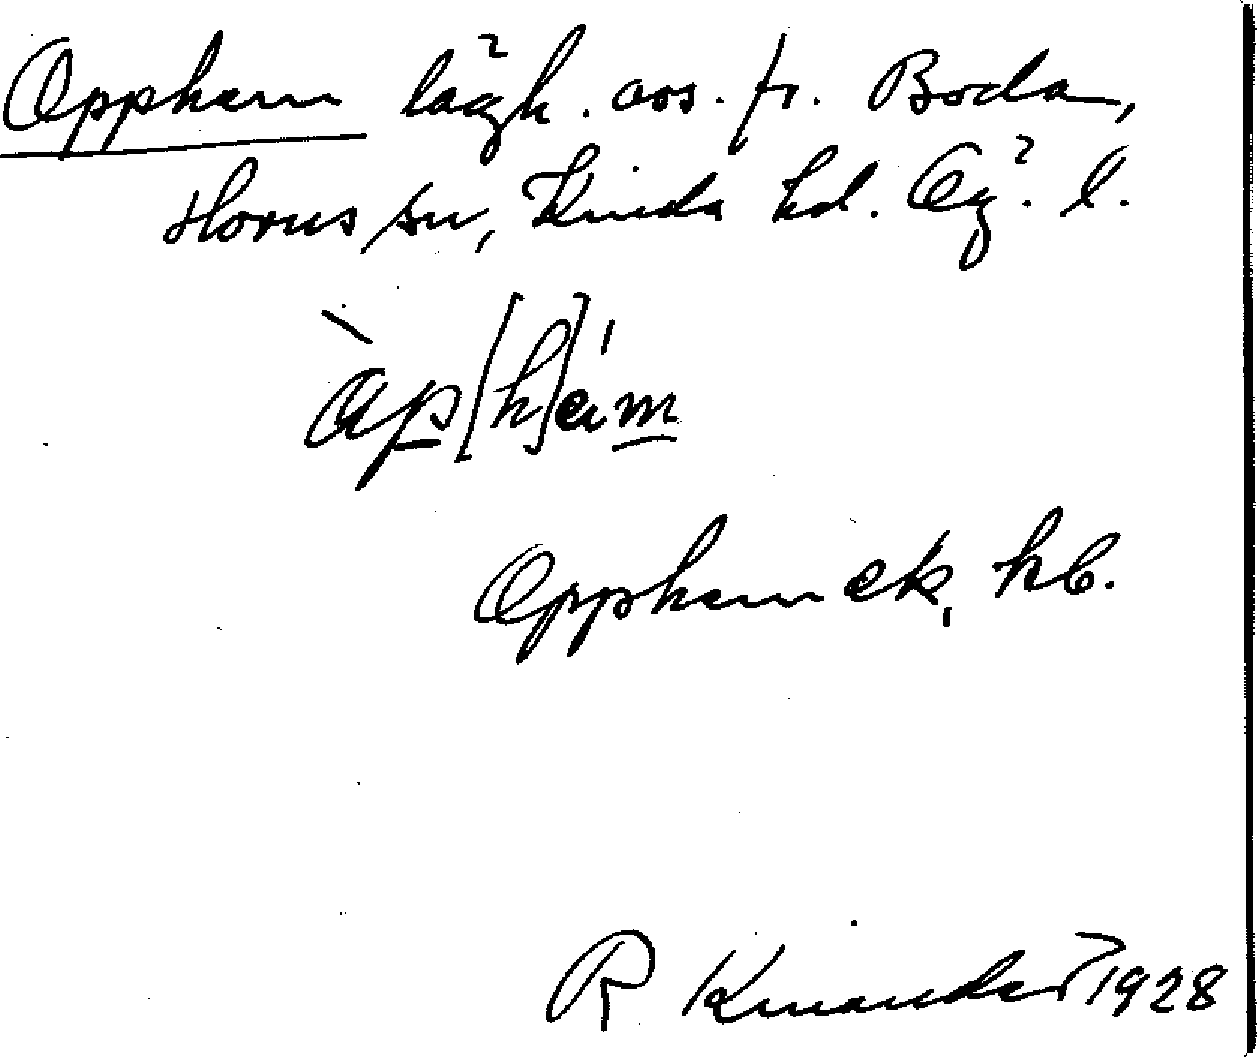 Opphem lägh. avs. fr. Boda,
Horns sn, Kinda hd. Ög. l.
ὰp[h]ém
Opphem ek, kb.
R Kinander 1928